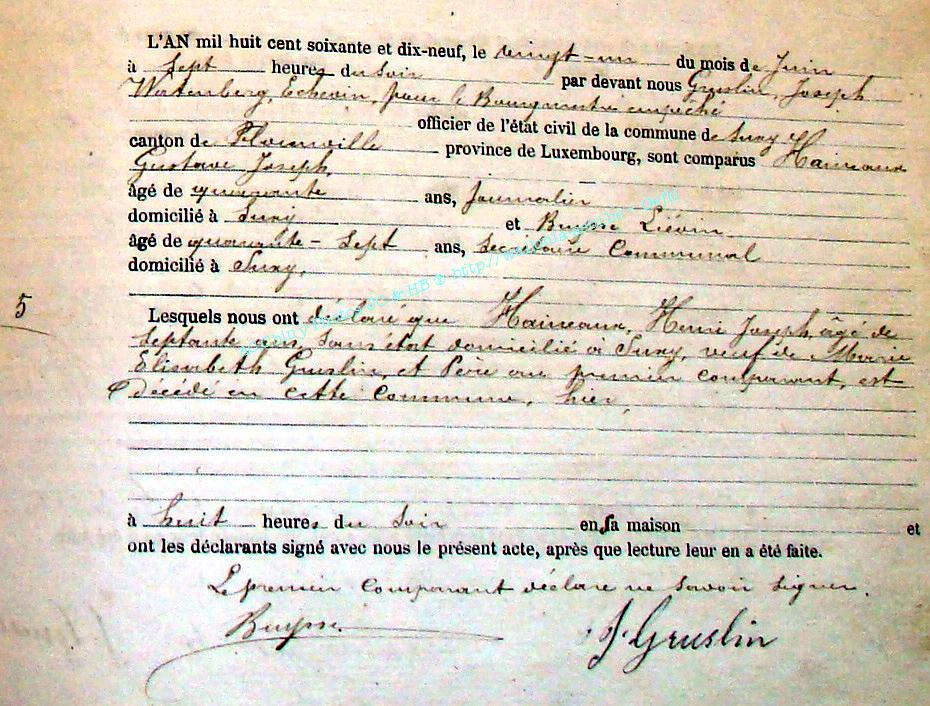 L'AN mil huit cent soixante et dix-neuf, le vingt-un du mois de Juin
à Sept heures du Soir par devant nous Gruslin, Joseph
Watenberg, Echevin, pour le Bourgmestre empêché
officier de l'état civil de la commune de Suxy
canton de Florenville province de Luxembourg, sont comparus Haineaux
Gustave Joseph,
âgé de quarante ans, Journalier
domicilié à Suxy et Buysse Liévin
âgé de quarante-Sept ans, Secrétaire Communal
domicilié à Suxy,
5
Lesquels nous ont déclaré que Haineaux, Henri Joseph, âgé de
Septante ans, Sans état domicilié à Suxy, veuf de Marie
Elisabeth Gruslin, et Père au premier comparant, est
décédé en cette Commune, hier,
à huit heures du Soir en sa maison et
ont les déclarants signé avec nous le présent acte, après que lecture leur en a été faite.
Le premier Comparant déclare ne Savoir Signer.
Buysse. J. Gruslin